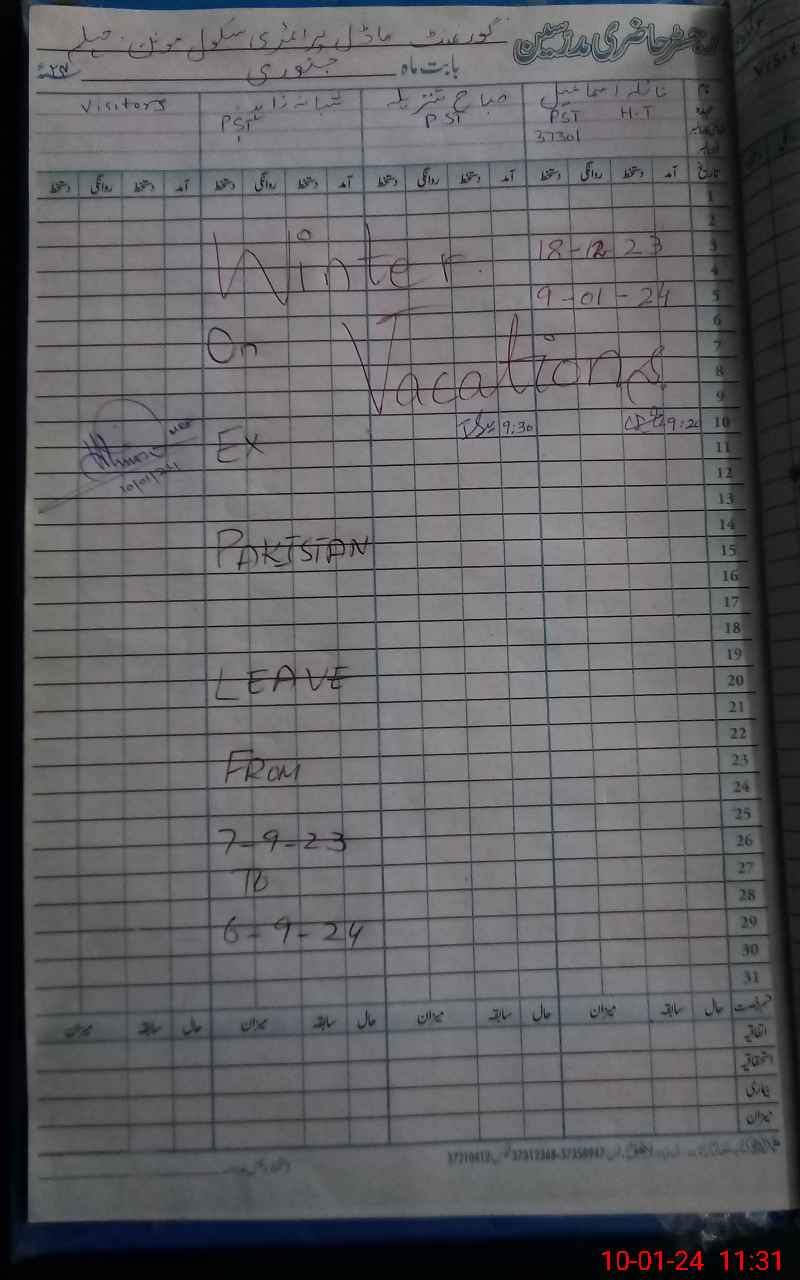 رجسٹر حاضری مدرسین
گورنمنٹ ماڈل پرائمری سکول
بابت ماہ جنوری
نام نائلہ اسماعیل صباح شبانہ زاہد Visitors
PST H.T PST PST
37301
تاریخ آمد دستخط روانگی دستخط آمد دستخط روانگی دستخط آمد دستخط روانگی دستخط آمد دستخط روانگی دستخط
1
2
3
4
5
6
7
8
9
10
11
12
13
14
15
16
17
18
19
20
21
22
23
24
25
26
27
28
29
30
31
18-12 23
9-01-24
Winter
On Vacations
9:30
Ex
PAKISTAN
LEAVE
FROM
7-9-23
To
6-9-24
10/01/24
حال سابقہ میزان حال سابقہ میزان حال سابقہ میزان حال سابقہ میزان
اتفاقیہ
استحقاقیہ
بیماری
میزان
10-01-24 11:31